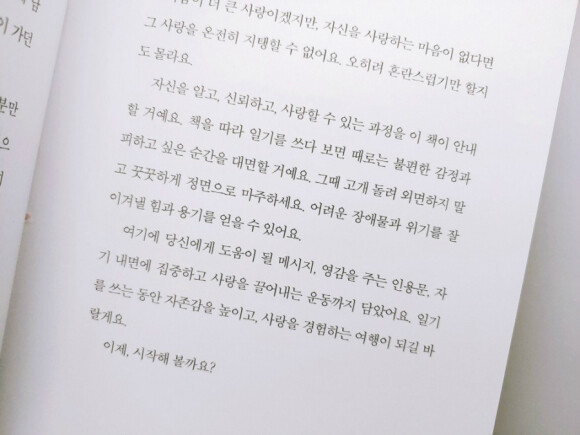 남
이 가던
분만
으
더 큰 사랑이겠지만, 자신을 사랑하는 마음이 없다면
그 사랑을 온전히 지탱할 수 없어요. 오히려 혼란스럽기만 할지
도 몰라요.
자신을 알고, 신뢰하고, 사랑할 수 있는 과정을 이 책이 안내
할 거예요. 책을 따라 일기를 쓰다 보면 때로는 불편한 감정과
피하고 싶은 순간을 대면할 거예요. 그때 고개 돌려 외면하지 말
고 꿋꿋하게 정면으로 마주하세요. 어려운 장애물과 위기를 잘
이겨낼 힘과 용기를 얻을 수 있어요.
여기에 당신에게 도움이 될 메시지, 영감을 주는 인용문, 자
기 내면에 집중하고 사랑을 끌어내는 운동까지 담았어요. 일기
를 쓰는 동안 자존감을 높이고, 사랑을 경험하는 여행이 되길 바
랄게요.
이제, 시작해 볼까요?